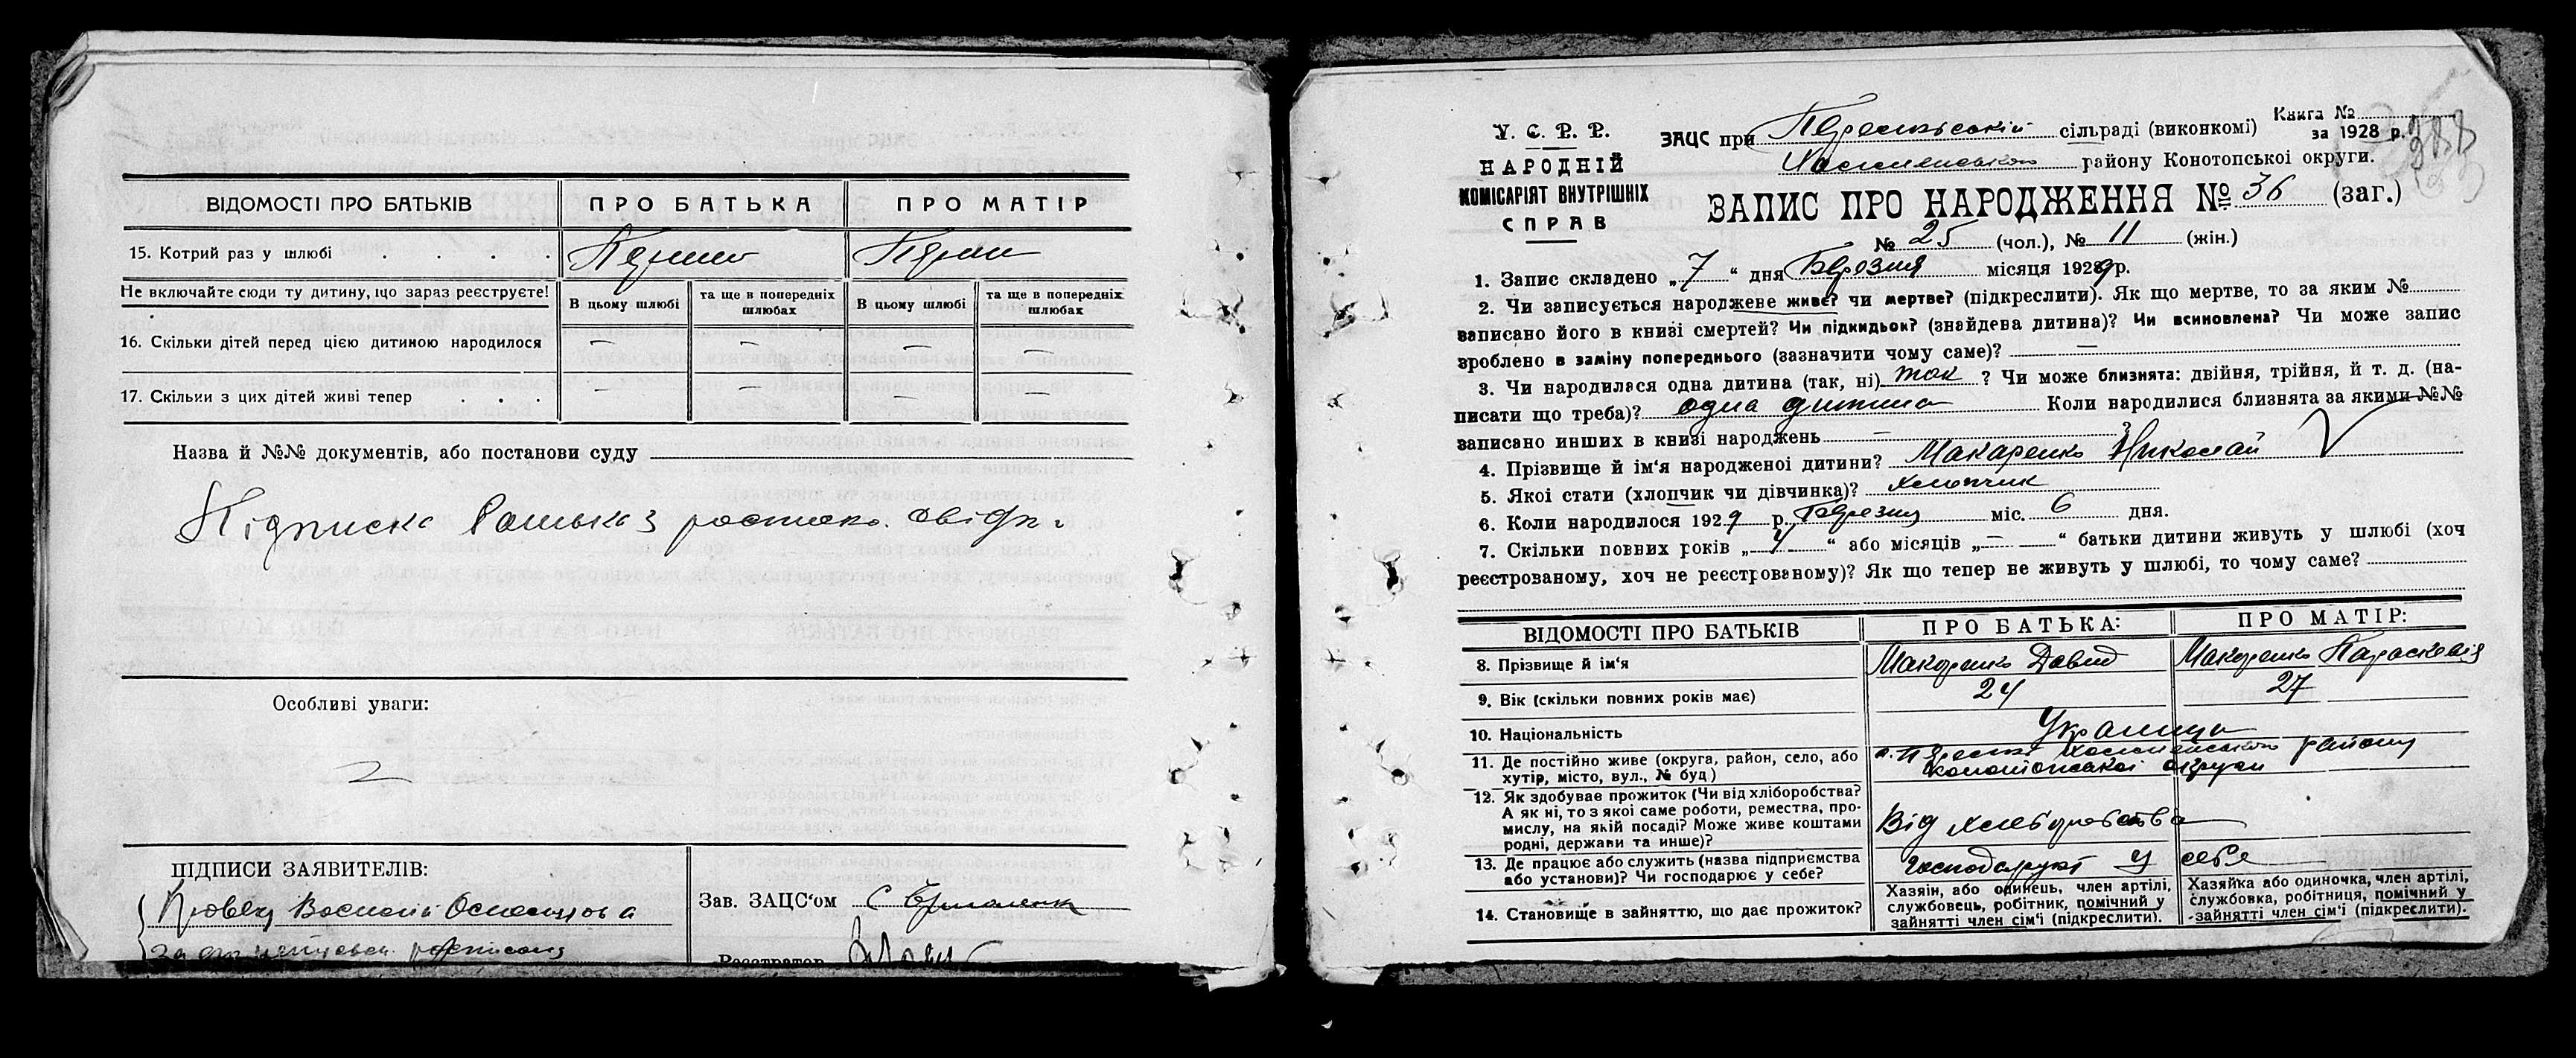 ВІДОМОСТІ ПРО БАТЬКІВ
ПРО БАТЬКА
ПРО МАТІР
15. Котрий раз у шлюбі
Перший
Не включайте сюди ту дитину, що зараз реєструєте!
В цьому шлюбі
та ще в попередніх шлюбах
В цьому шлюбі
та ще в попередніх шлюбах
16. Скільки дітей перед цією дитиною народилося — — — —
17. Скільки з цих дітей живі тепер — — — —
Назва й №№ документів, або постанови суду
Підписка
Особливі уваги:
ПІДПИСИ ЗАЯВИТЕЛІВ:
Зав. ЗАЦС‘ом
Реєстратор
У. С. Р. Р.
НАРОДНІЙ
КОМІСАРІЯТ ВНУТРІШНІХ
СПРАВ
Книга №
ЗАЦС при сільраді (виконкомі)
за 1928 р.
району Конотопської округи.
ЗАПИС ПРО НАРОДЖЕННЯ № 36 (заг.)
№ 25 (чол.), № 11 (жін.)
1. Запис складено „7“ дня Березня місяця 1929 р.
2. Чи записується народжене живе? чи мертве? (підкреслити). Як що мертве, то за яким №
записано його в книзі смертей? Чи підкидьок? (знайдена дитина)? Чи всиновлена? Чи може запис
зроблено в заміну попереднього (зазначити чому саме)? —
3. Чи народилася одна дитина (так, ні) так ? Чи може близнята: двійня, трійня, й т. д. (на-
писати що треба)? одна дитина Коли народилися близнята за якими №№
записано инших в книзі народжень — ?
4. Прізвище й ім‘я народженої дитини? Макаренко Николай
5. Якої стати (хлопчик чи дівчинка)? хлопчик
6. Коли народилося 1929 р. Березня міс. 6 дня.
7. Скільки повних років „4“ або місяців „—“ батьки дитини живуть у шлюбі (хоч
реєстрованому, хоч не реєстрованому)? Як що тепер не живуть у шлюбі, то чому саме?
ВІДОМОСТІ ПРО БАТЬКІВ
ПРО БАТЬКА:
ПРО МАТІР:
8. Прізвище й ім‘я
Макаренко Давид
Макаренко Параскевія
9. Вік (скільки повних років має)
24
27
10. Національність
Українці
11. Де постійно живе (округа, район, село, або
хутір, місто, вул., № буд)
району
конотопської округи
12. Як здобуває прожиток (Чи від хліборобства?
А як ні, то з якої саме роботи, ремества, про-
мислу, на якій посаді? Може живе коштами
родні, держави та инше)?
Від хліборобства
13. Де працює або служить (назва підприємства
або установи)? Чи господарює у себе?
господарюют у себе
14. Становище в зайняттю, що дає прожиток?
Хазяін, або одинець, член артілі,
службовець, робітник, помічний у
зайнятті член сім‘ї (підкреслити).
Хазяйка або одиночка, член артілі,
службовка, робітниця, помічний у
зайнятті член сім‘ї (підкреслити).